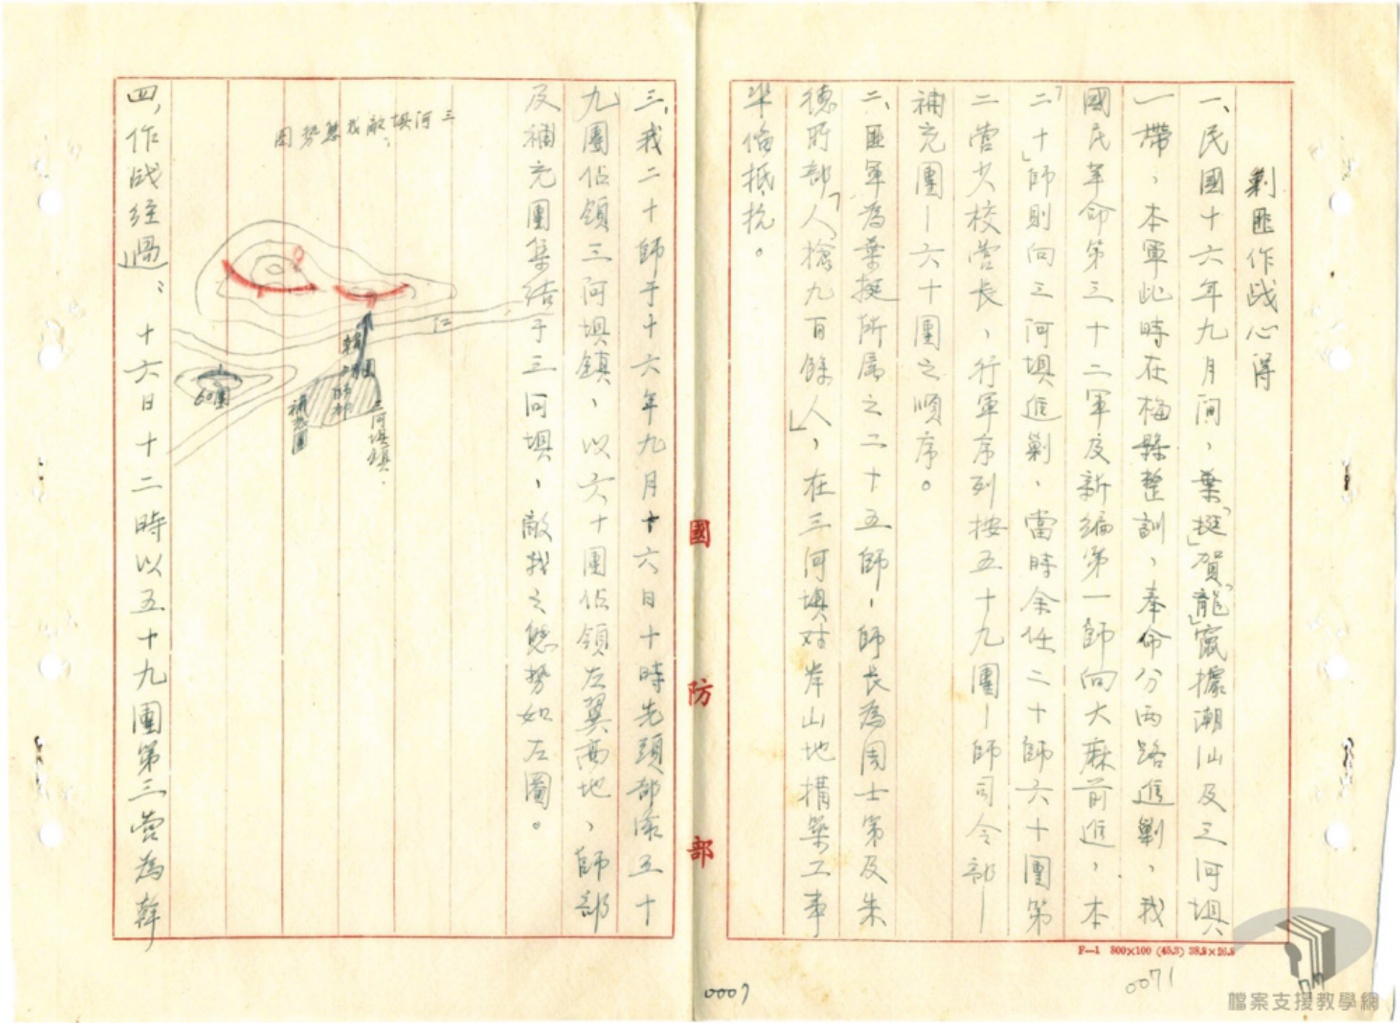 剿匪作战心得
一、民國十六年九月間，葉「挺」賀「龍」竄據潮汕及三河填
一帶，本軍此時在梅縣整訓，奉命分兩路進剿，我
國民革命第三十二軍及新編第一師向大麻前進，本
「二十」師則向三河填進剿，當時余任二十師六十團第
二营少校营長，行軍序列按五十九團—師司令部—
補充團—六十團之順序。
二、匪軍為葉挺所屬之二十五師，師長為周士第及朱
德所部「人槍九百餘人」，在三河填对岸山地構築工事
準備抵抗。
三、我二十師于十六年九月十六日十時先頭部隊五十
九團佔領三河填鎮，以六十團佔領左翼高地，師部
及補充團集結于三河填，敵我之態势如左圖。
三河填敵我態势圖
江
60團
補充團
師部
三河填鎮
四、作战经過：十六日十二時以五十九團第三营為幹
國防部
F—1 800×100
0007
0071
檔案支援教學網